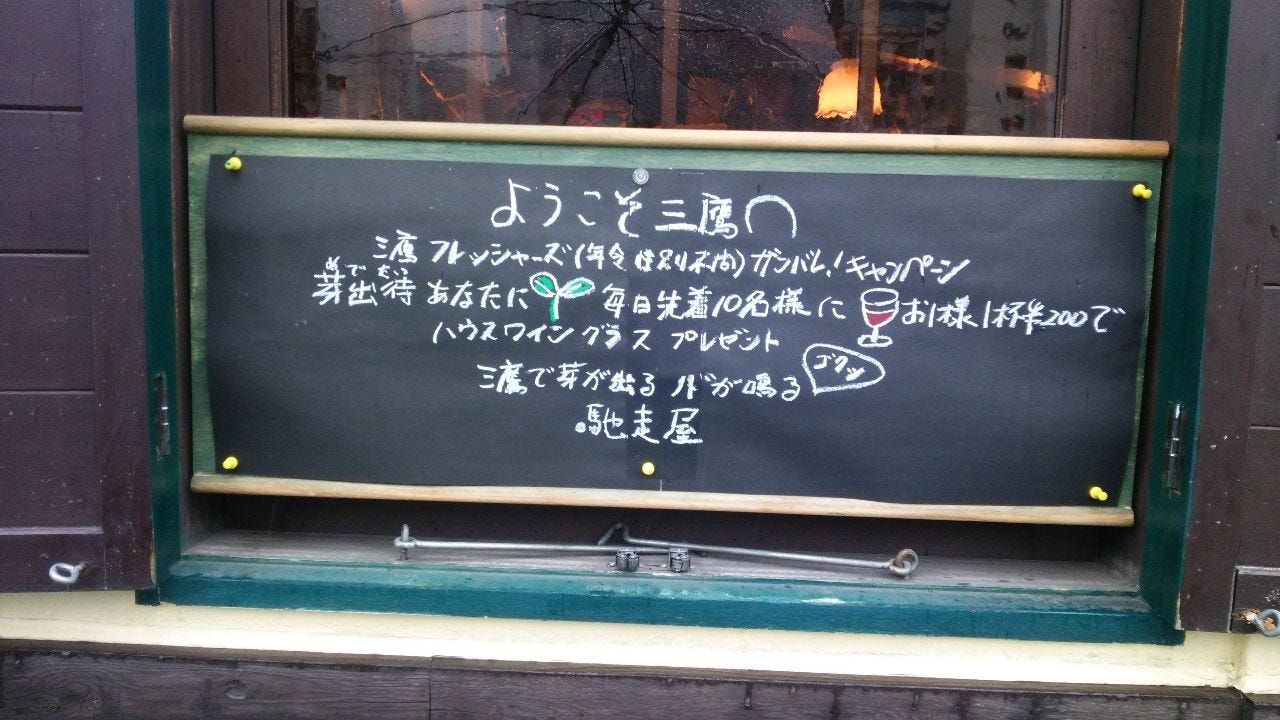 ようこそ三鷹へ
三鷹 フレッシャーズ(年令性別不問)ガンバレ!キャンペーン
芽出待 あなたに 毎日先着10名様に お1様1杯¥200で
めでたい
ハウスワイン グラス プレゼント
三鷹で芽が出る ノドが鳴る ゴクッ
馳走屋